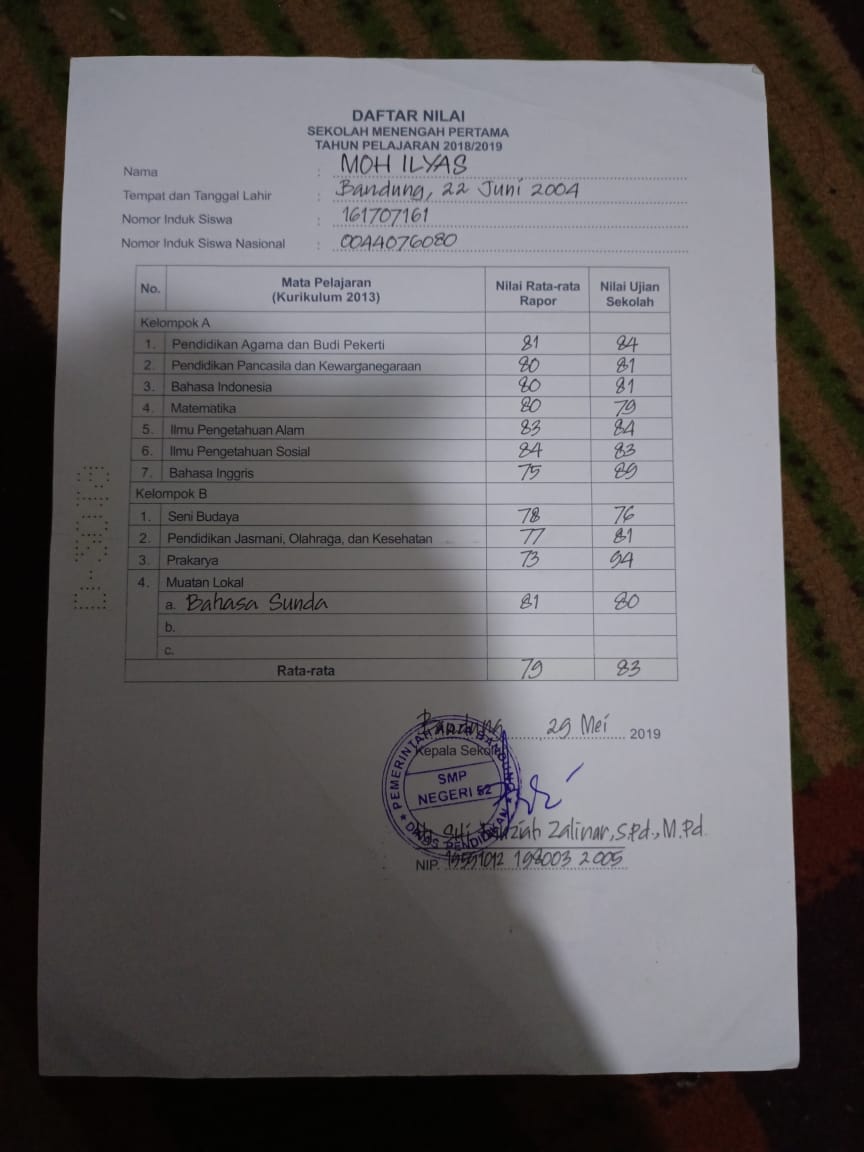 DAFTAR NILAI
SEKOLAH MENENGAH PERTAMA
TAHUN PELAJARAN 2018/2019
Nama : MOH ILYAS
Tempat dan Tanggal Lahir : Bandung, 22 Juni 2004
Nomor Induk Siswa : 161707161
Nomor Induk Siswa Nasional : 0044076080
No. Mata Pelajaran (Kurikulum 2013) Nilai Rata-rata Rapor Nilai Ujian Sekolah
Kelompok A
1. Pendidikan Agama dan Budi Pekerti 81 84
2. Pendidikan Pancasila dan Kewarganegaraan 80 81
3. Bahasa Indonesia 80 81
4. Matematika 80 79
5. Ilmu Pengetahuan Alam 83 84
6. Ilmu Pengetahuan Sosial 84 83
7. Bahasa Inggris 75 89
Kelompok B
1. Seni Budaya 78 76
2. Pendidikan Jasmani, Olahraga, dan Kesehatan 77 81
3. Prakarya 73 94
4. Muatan Lokal
a. Bahasa Sunda 81 80
b.
c.
Rata-rata 79 83
Bandung, 29 Mei 2019
Kepala Sekolah
PEMERINTAH KOTA BANDUNG
SMP
NEGERI 52
DINAS PENDIDIKAN
Siti Zalinar, S.Pd., M.Pd.
NIP. 198003 2005